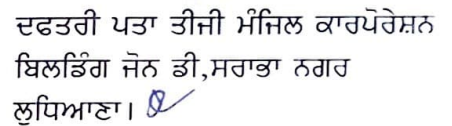 ਦਫਤਰੀ ਪਤਾ ਤੀਜੀ ਮੰਜਿਲ ਕਾਰਪੋਰੇਸ਼ਨ
ਬਿਲਡਿੰਗ ਜੋਨ ਡੀ,ਸਰਾਭਾ ਨਗਰ
ਲੁਧਿਆਣਾ।